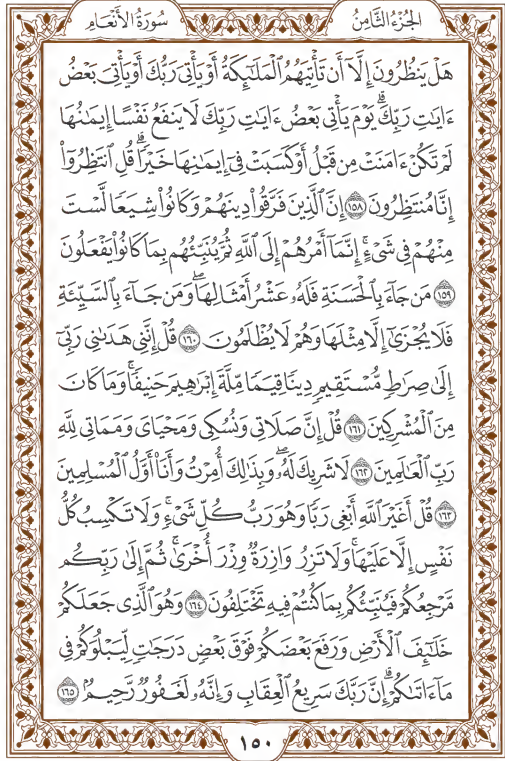 الجُزْءُ الثَّامِنُ
سُورَةُ الأَنْعَامِ
هَلۡ يَنظُرُونَ إِلَّآ أَن تَأۡتِيَهُمُ ٱلۡمَلَٰٓئِكَةُ أَوۡ يَأۡتِيَ رَبُّكَ أَوۡ يَأۡتِيَ بَعۡضُ
ءَايَٰتِ رَبِّكَۗ يَوۡمَ يَأۡتِي بَعۡضُ ءَايَٰتِ رَبِّكَ لَا يَنفَعُ نَفۡسًا إِيمَٰنُهَا
لَمۡ تَكُنۡ ءَامَنَتۡ مِن قَبۡلُ أَوۡ كَسَبَتۡ فِيٓ إِيمَٰنِهَا خَيۡرٗاۗ قُلِ ٱنتَظِرُوٓاْ
إِنَّا مُنتَظِرُونَ ١٥٨ إِنَّ ٱلَّذِينَ فَرَّقُواْ دِينَهُمۡ وَكَانُواْ شِيَعٗا لَّسۡتَ
مِنۡهُمۡ فِي شَيۡءٍۚ إِنَّمَآ أَمۡرُهُمۡ إِلَى ٱللَّهِ ثُمَّ يُنَبِّئُهُم بِمَا كَانُواْ يَفۡعَلُونَ
١٥٩ مَن جَآءَ بِٱلۡحَسَنَةِ فَلَهُۥ عَشۡرُ أَمۡثَالِهَاۖ وَمَن جَآءَ بِٱلسَّيِّئَةِ
فَلَا يُجۡزَىٰٓ إِلَّا مِثۡلَهَا وَهُمۡ لَا يُظۡلَمُونَ ١٦٠ قُلۡ إِنَّنِي هَدَىٰنِي رَبِّيٓ
إِلَىٰ صِرَٰطٖ مُّسۡتَقِيمٖ دِينٗا قِيَمٗا مِّلَّةَ إِبۡرَٰهِيمَ حَنِيفٗاۚ وَمَا كَانَ
مِنَ ٱلۡمُشۡرِكِينَ ١٦١ قُلۡ إِنَّ صَلَاتِي وَنُسُكِي وَمَحۡيَايَ وَمَمَاتِي لِلَّهِ
رَبِّ ٱلۡعَٰلَمِينَ ١٦٢ لَا شَرِيكَ لَهُۥۖ وَبِذَٰلِكَ أُمِرۡتُ وَأَنَا۠ أَوَّلُ ٱلۡمُسۡلِمِينَ
١٦٣ قُلۡ أَغَيۡرَ ٱللَّهِ أَبۡغِي رَبّٗا وَهُوَ رَبُّ كُلِّ شَيۡءٖۚ وَلَا تَكۡسِبُ كُلُّ
نَفۡسٍ إِلَّا عَلَيۡهَاۚ وَلَا تَزِرُ وَازِرَةٞ وِزۡرَ أُخۡرَىٰۚ ثُمَّ إِلَىٰ رَبِّكُم
مَّرۡجِعُكُمۡ فَيُنَبِّئُكُم بِمَا كُنتُمۡ فِيهِ تَخۡتَلِفُونَ ١٦٤ وَهُوَ ٱلَّذِي جَعَلَكُمۡ
خَلَٰٓئِفَ ٱلۡأَرۡضِ وَرَفَعَ بَعۡضَكُمۡ فَوۡقَ بَعۡضٖ دَرَجَٰتٖ لِّيَبۡلُوَكُمۡ فِي
مَآ ءَاتَىٰكُمۡۗ إِنَّ رَبَّكَ سَرِيعُ ٱلۡعِقَابِ وَإِنَّهُۥ لَغَفُورٞ رَّحِيمُۢ ١٦٥
١٥٠